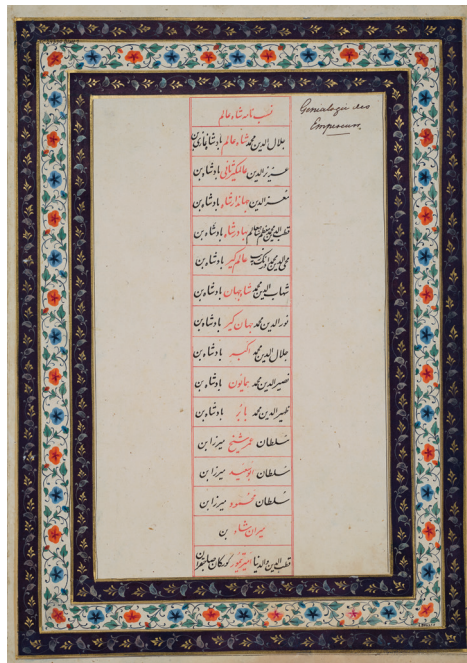 Genealogie des
Empereurs.
نسب نامه شاه عالم
جلال الدین محمد شاه عالم بادشاه غازی بن
عزیز الدین عالمگیر ثانی بادشاه بن
معز الدین جهاندار شاه بادشاه بن
قطب الدین محمد معظم شاه عالم بهادر شاه بادشاه بن
محی الدین محمد اورنگ زیب عالم گیر بادشاه بن
شهاب الدین محمد شاه جهان بادشاه بن
نور الدین محمد جهان گیر بادشاه بن
جلال الدین محمد اکبر بادشاه بن
نصیر الدین محمد همایون بادشاه بن
ظهیر الدین محمد بابر بادشاه بن
سلطان عمر شیخ میرزا بن
سلطان ابوسعید میرزا بن
سلطان محمد میرزا بن
میران شاه بن
قطب الدین والدنیا امیر تیمور گورکان صاحبقران